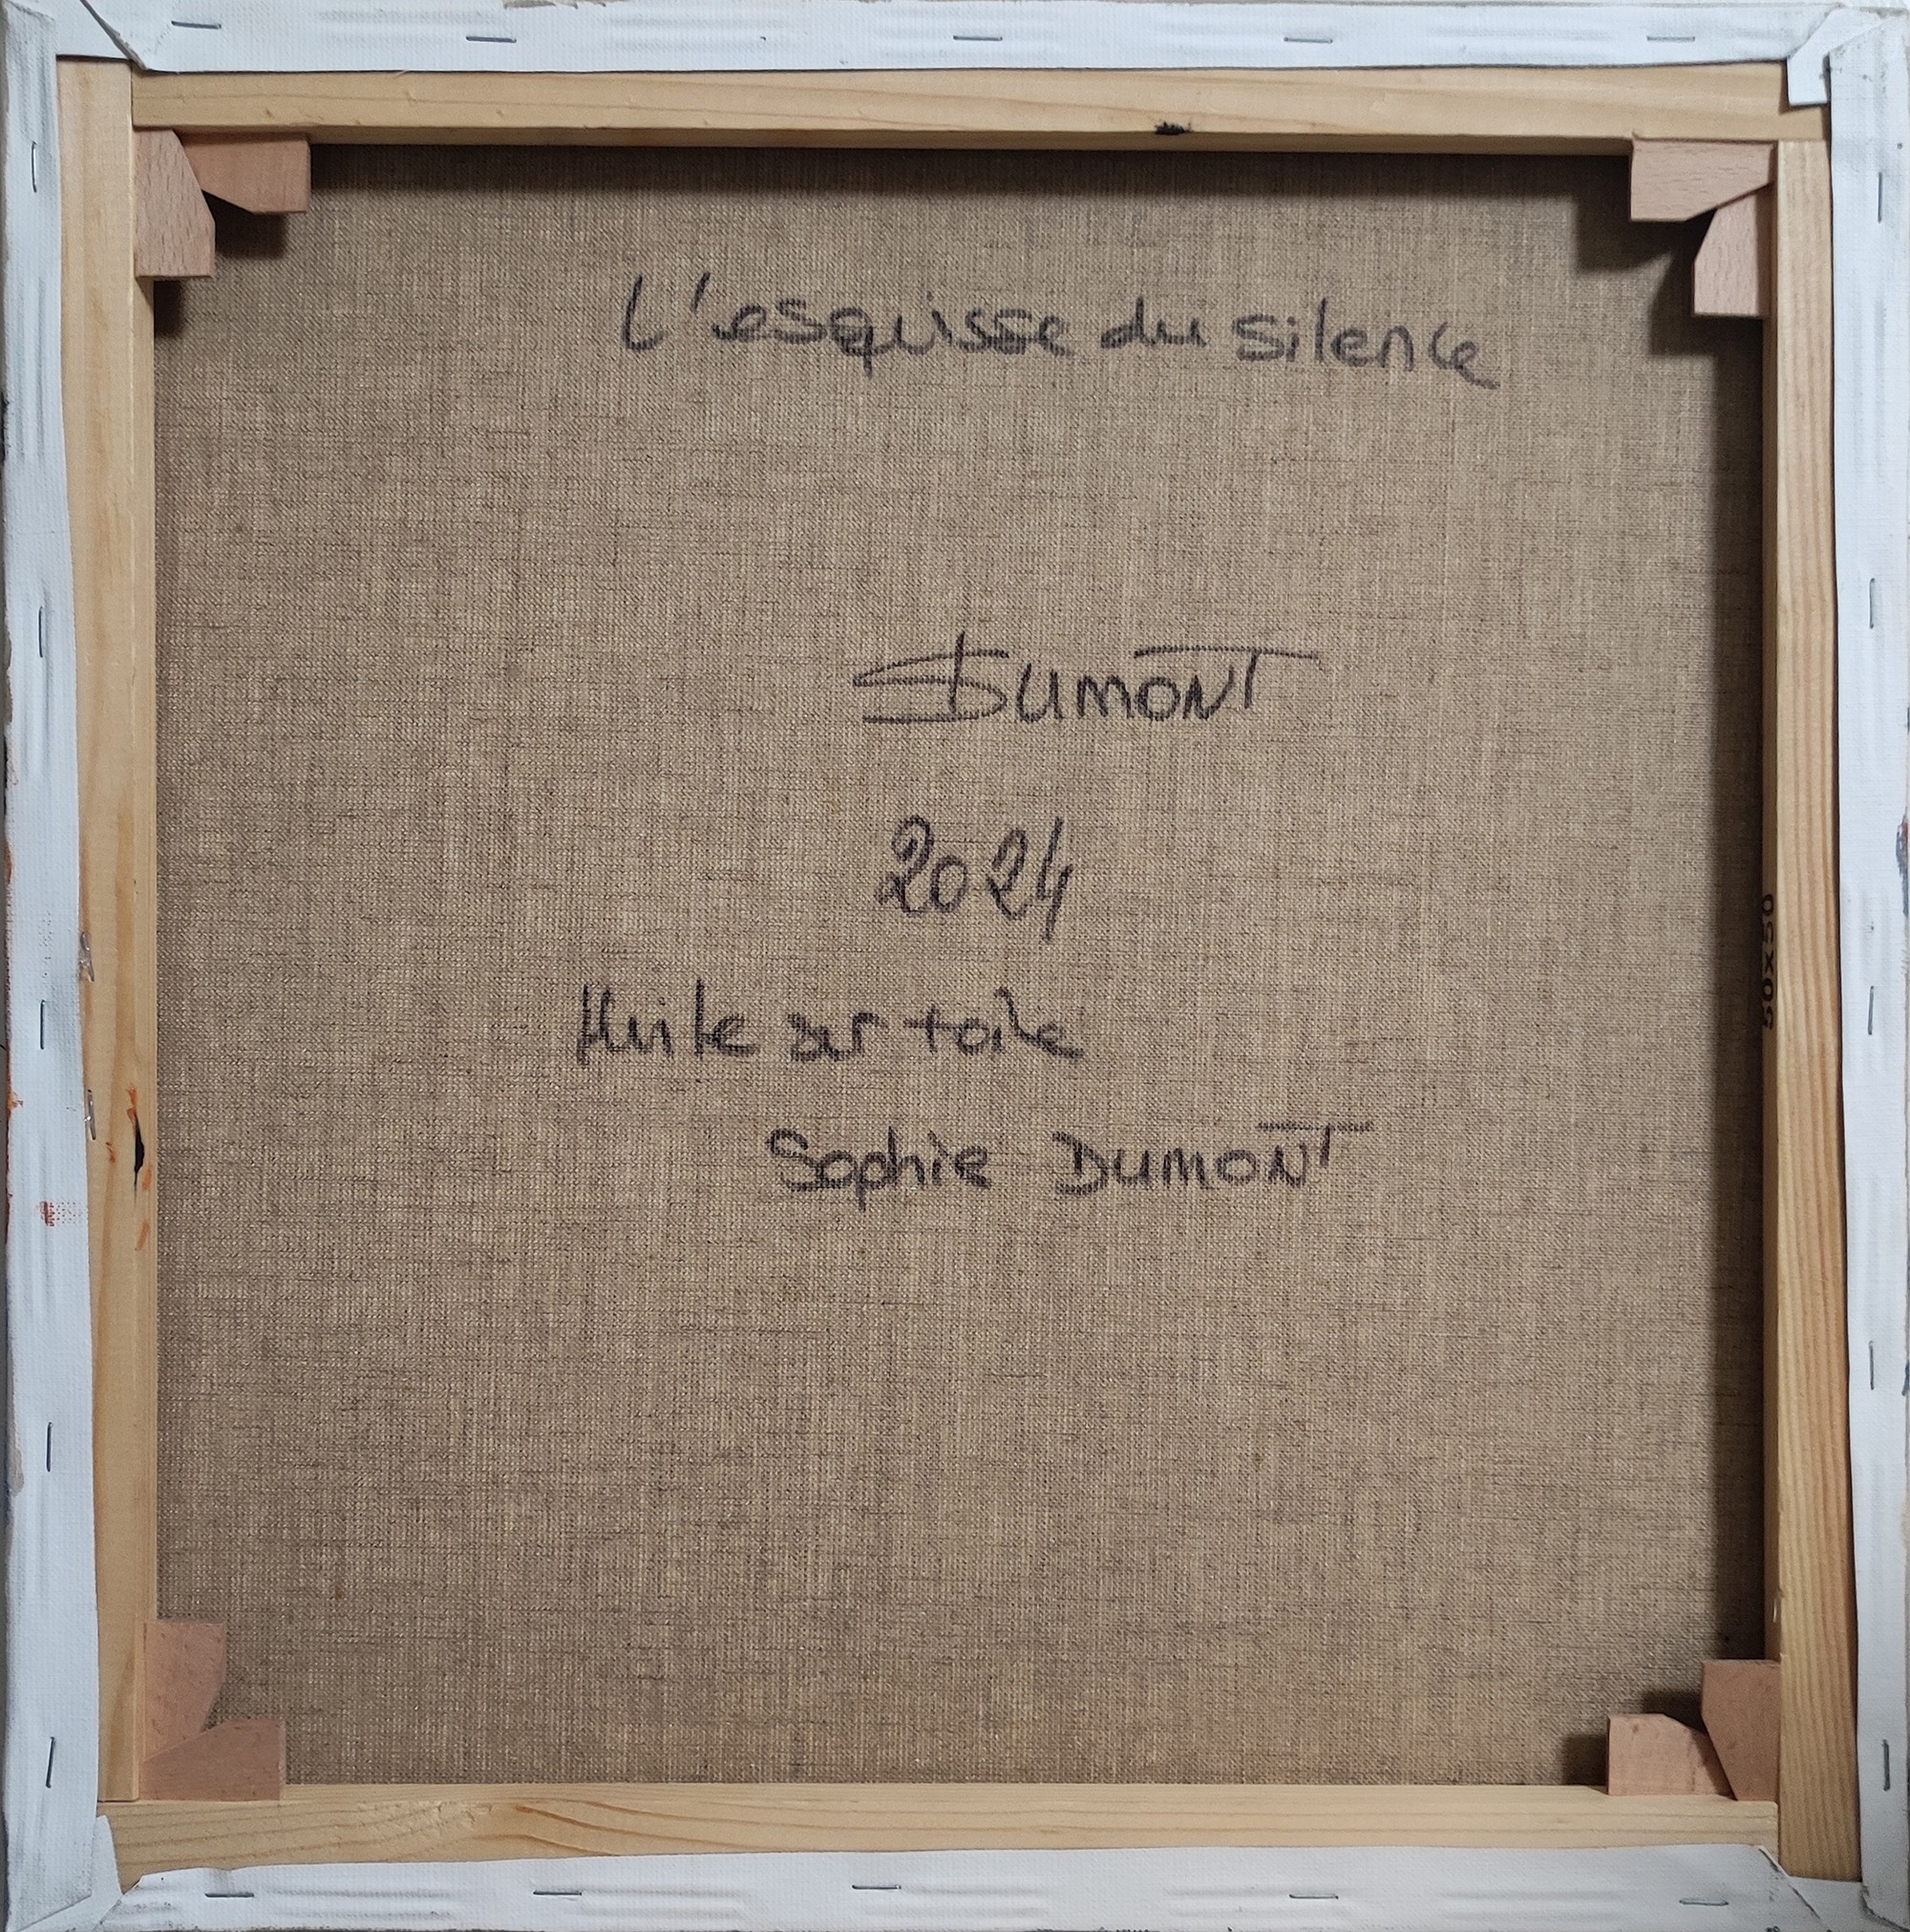 L'esquisse du silence
SDUMONT
2024
50x50
Huile sur toile
Sophie DUMONT